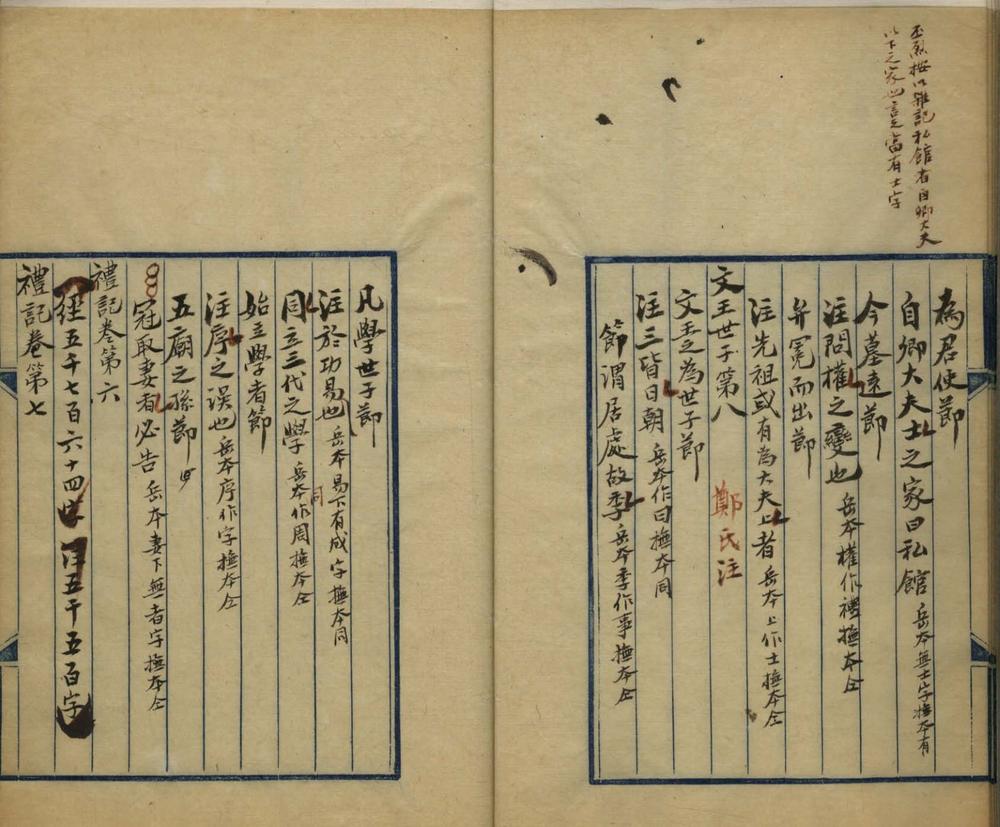 丕烈按以雜記私館者自卿大夫
以下之家也言之當有士字
為君使節
自卿大夫士之家曰私館 岳本無士字撫本有
今墓遠節
注問權之變也 岳本權作禮撫本仝
弁冕而出節
注先祖或有為大夫上者 岳本上作士撫本仝
文王世子第八 鄭氏注
文王之為世子節
注三皆日朝 岳本作曰撫本同
節謂居處故季 岳本季作事撫本仝
凡學世子節
注於功易也 岳本易下有成字撫本同
同立三代之學 岳本同作周撫本仝
始立學者節
注序之誤也 岳本序作字撫本仝
五廟之孫節
冠取妻者必告 岳本妻下無者字撫本仝
禮記卷第六
經五千七百六十四字 注五千五百字
禮記卷第七